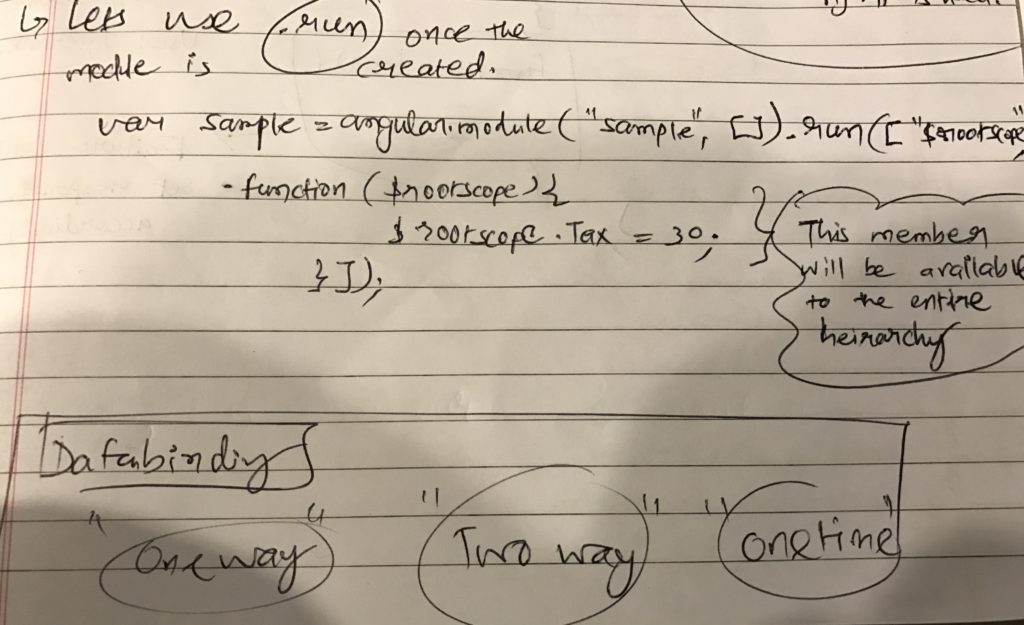 ↳ Lets use .run once the
module is created.
var sample = angular.module("sample", []).run(["$rootscope",
- function ($rootscope) {
$rootscope.Tax = 30;
}]);
This member
will be available
to the entire
heirarchy
Databinding
"One way" "Two way" "onetime"